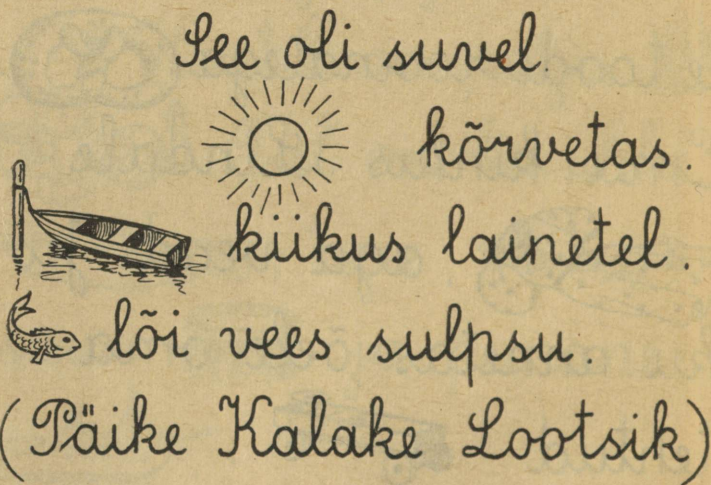 See oli suvel.
kõrvetas.
kiikus lainetel.
lõi vees sulpsu.
(Päike Kalake Lootsik)